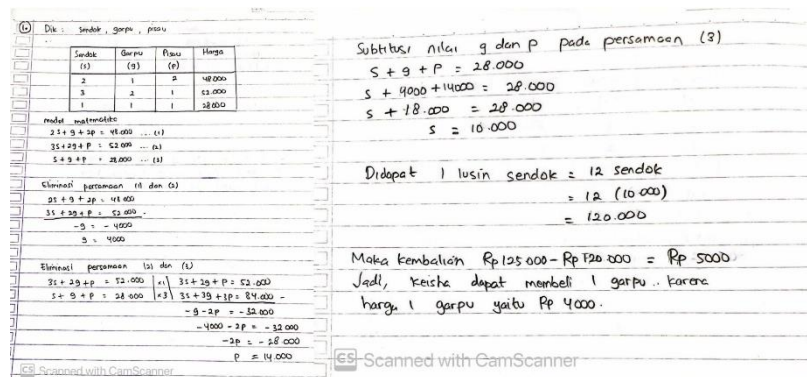 10. Dik : Sendok, garpu, pisau
Sendok (s) Garpu (g) Pisau (p) Harga
2 1 2 48.000
3 2 1 52.000
1 1 1 28.000
model matematika
2s + g + 2p = 48.000 ... (1)
3s + 2g + p = 52.000 ... (2)
s + g + p = 28.000 ... (3)
Eliminasi persamaan (1) dan (2)
2s + g + 2p = 48.000
3s + 2g + p = 52.000 -
-g = -4000
g = 4000
Eliminasi persamaan (2) dan (3)
3s + 2g + p = 52.000 | x1 | 3s + 2g + p = 52.000
s + g + p = 28.000 | x3 | 3s + 3g + 3p = 84.000 -
-g - 2p = -32.000
-4000 - 2p = -32.000
-2p = -28.000
p = 14.000
CS Scanned with CamScanner
Subtitusi nilai g dan p pada persamaan (3)
s + g + p = 28.000
s + 4000 + 14000 = 28.000
s + 18.000 = 28.000
s = 10.000
Didapat 1 lusin sendok = 12 sendok
= 12 (10.000)
= 120.000
Maka kembalian Rp 125.000 - Rp 120.000 = Rp 5000
Jadi, keisha dapat membeli 1 garpu.. karena
harga 1 garpu yaitu Rp 4000.
CS Scanned with CamScanner